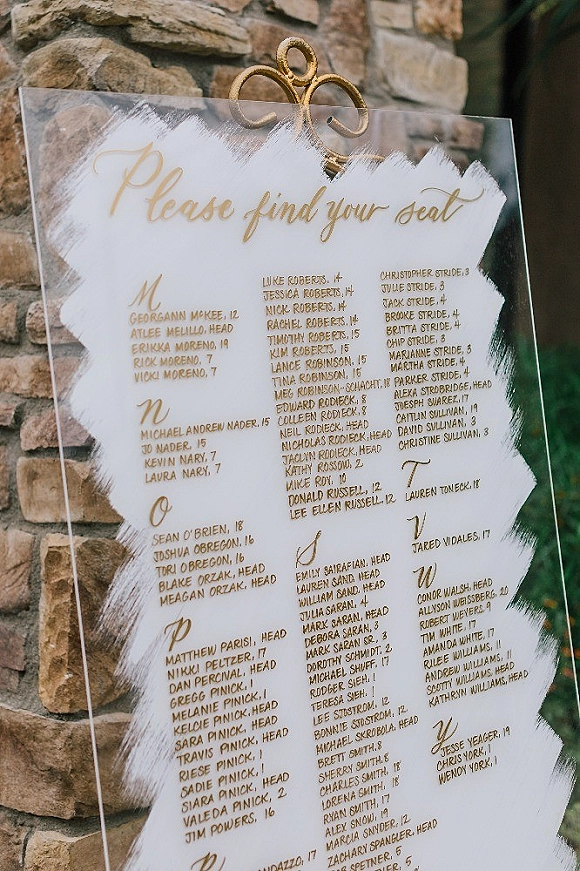 Please find your seat
M
GEORGANN McKEE, 12
ATLEE MELILLO, HEAD
ERIKKA MORENO, 19
RICK MORENO, 7
VICKI MORENO, 7
N
MICHAEL ANDREW NADER, 15
JO NADER, 15
KEVIN NARY, 7
LAURA NARY, 7
O
SEAN O'BRIEN, 18
JOSHUA OBREGON, 16
TORI OBREGON, 16
BLAKE ORZAK, HEAD
MEAGAN ORZAK, HEAD
P
MATTHEW PARISI, HEAD
NIKKI PELTZER, 17
DAN PERCIVAL, HEAD
GREGG PINICK, 1
MELANIE PINICK, 1
KELCIE PINICK, HEAD
SARA PINICK, HEAD
TRAVIS PINICK, HEAD
RIESE PINICK, 1
SADIE PINICK, 1
SIARA PINICK, HEAD
VALEDA PINICK, 2
JIM POWERS, 16
R
LUKE ROBERTS, 14
JESSICA ROBERTS, 14
NICK ROBERTS, 14
RACHEL ROBERTS, 14
TIMOTHY ROBERTS, 15
KIM ROBERTS, 15
LANCE ROBINSON, 15
TINA ROBINSON, 15
MEG ROBINSON-SCHACHT, 18
EDWARD RODIECK, 8
COLLEEN RODIECK, 8
NEIL RODIECK, HEAD
NICHOLAS RODIECK, HEAD
JACLYN RODIECK, HEAD
KATHY ROSSOW, 2
MIKE ROY, 10
DONALD RUSSELL, 12
LEE ELLEN RUSSELL, 12
S
EMILY SAIRAFIAN, HEAD
LAUREN SAND, HEAD
WILLIAM SAND, HEAD
JULIA SARAN, 4
MARK SARAN, HEAD
DEBORA SARAN, 3
MARK SARAN SR, 3
DOROTHY SCHMIDT, 2
MICHAEL SHUFF, 17
RODGER SIEH, 1
TERESA SIEH, 1
LEE SJOSTROM, 12
BONNIE SJOSTROM, 12
MICHAEL SKROBOLA, HEAD
BRETT SMITH, 8
SHERRY SMITH, 8
CHARLES SMITH, 18
LORENA SMITH, 18
RYAN SMITH, 17
ALEX SNOW, 19
MARCIA SNYDER, 12
ZACHARY SPANGLER, HEAD
SPETNER, 5
CHRISTOPHER STRIDE, 3
JULIE STRIDE, 3
JACK STRIDE, 4
BROOKE STRIDE, 4
BRITTA STRIDE, 4
CHIP STRIDE, 3
MARIANNE STRIDE, 3
MARTHA STRIDE, 4
PARKER STRIDE, 4
ALEXA STROBRIDGE, HEAD
JOESPH SUAREZ, 17
CAITLIN SULLIVAN, 19
DAVID SULLIVAN, 3
CHRISTINE SULLIVAN, 3
T
LAUREN TONECK, 18
V
JARED VIDALES, 17
W
CONOR WALSH, HEAD
ALLYSON WEISSBERG, 20
ROBERT WEYERS, 9
TIM WHITE, 17
AMANDA WHITE, 17
RILEE WILLIAMS, 11
ANDREW WILLIAMS, 11
SCOTTY WILLIAMS, HEAD
KATHRYN WILLIAMS, HEAD
Y
JESSE YEAGER, 19
CHRIS YORK, 1
WENDY YORK, 1